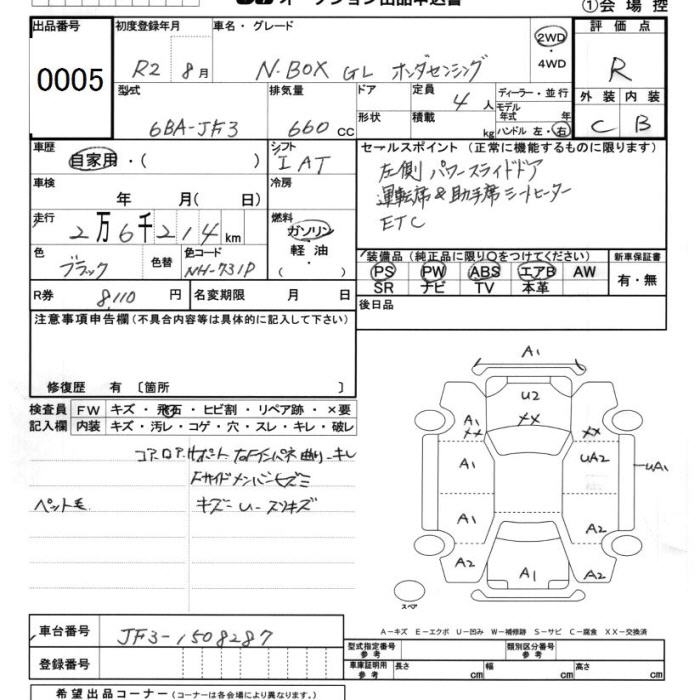 オークション出品申込書
①会場控
出品番号
0005
初度登録年月
R2 8月
車名・グレード
N-BOX GL ホンダセンシング
2WD
・
4WD
評価点
R
外装 内装
C B
型式
6BA-JF3
排気量
660 CC
ドア
形状
定員
4 人
積載
kg
ディーラー・並行
モデル
年式 年
ハンドル 左・右
車歴
自家用・( )
シフト
I AT
車検
年 月( 日)
冷房
走行
2万6千214km
燃料
ガソリン
軽油
( ・ )
色
ブラック
色替
色コード
NH-731P
R券
8110 円
名変期限 月 日
セールスポイント(正常に機能するものに限ります)
左側パワースライドドア
運転席&助手席シートヒーター
ETC
装備品(純正品に限り○をつけてください)
PS PW ABS エアB AW
SR ナビ TV 本革
新車保証書
有・無
後日品
注意事項申告欄(不具合内容等は具体的に記入して下さい)
修復歴 有 〔箇所 〕
検査員
記入欄
FW キズ・飛石・ヒビ割・リペア跡・×要
内装 キズ・汚レ・コゲ・穴・スレ・キレ・破レ
コアロアサポート 右Fインパネ曲り-キレ
Fサイドメンバーヒズミ
ペット毛
キズ-U-スリキズ
A1
U2
XX
A1
XX
XX
A1
UA2
UA1
A1
A2
A2
A1
A2
スペア
A-キズ E-エクボ U-凹み W-補修跡 S-サビ C-腐食 XX-交換済
車台番号
JF3-1508287
登録番号
型式指定番号
参考
類別区分番号
参考
車庫証明用
参考
長さ cm
幅 cm
高さ cm
希望出品コーナー(コーナーは各会場により異なります。)